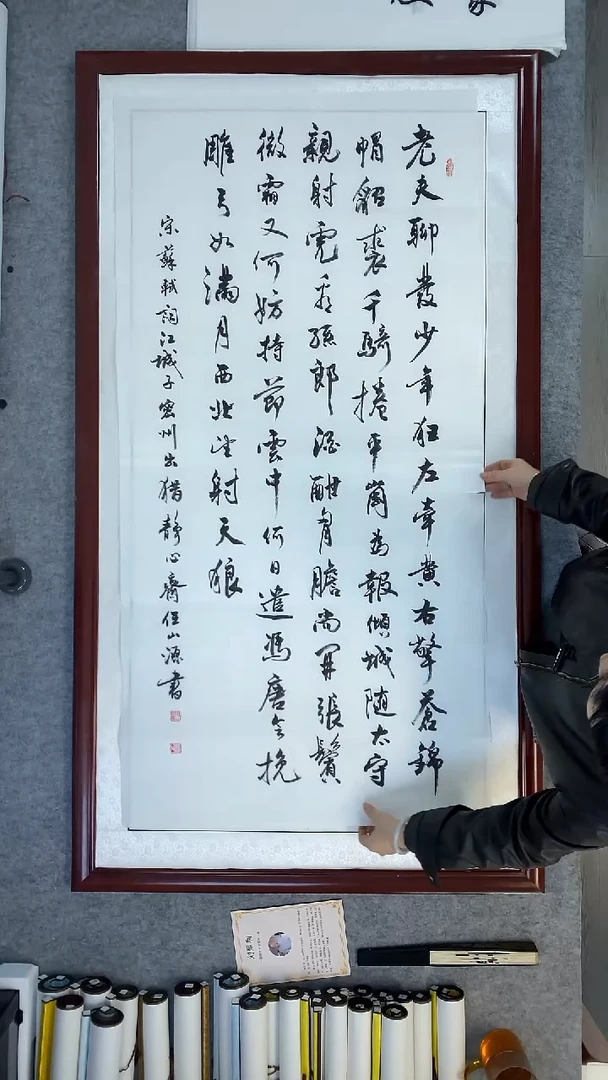 老夫聊發少年狂左牽黄右擎蒼錦
帽貂裘千騎捲平崗為報傾城隨太守
親射虎看孫郎酒酣胸膽尚開張鬢
微霜又何妨持節雲中何日遣馮唐會挽
雕弓如滿月西北望射天狼
宋蘇軾詞江城子密州出獵靜心齋任山源書